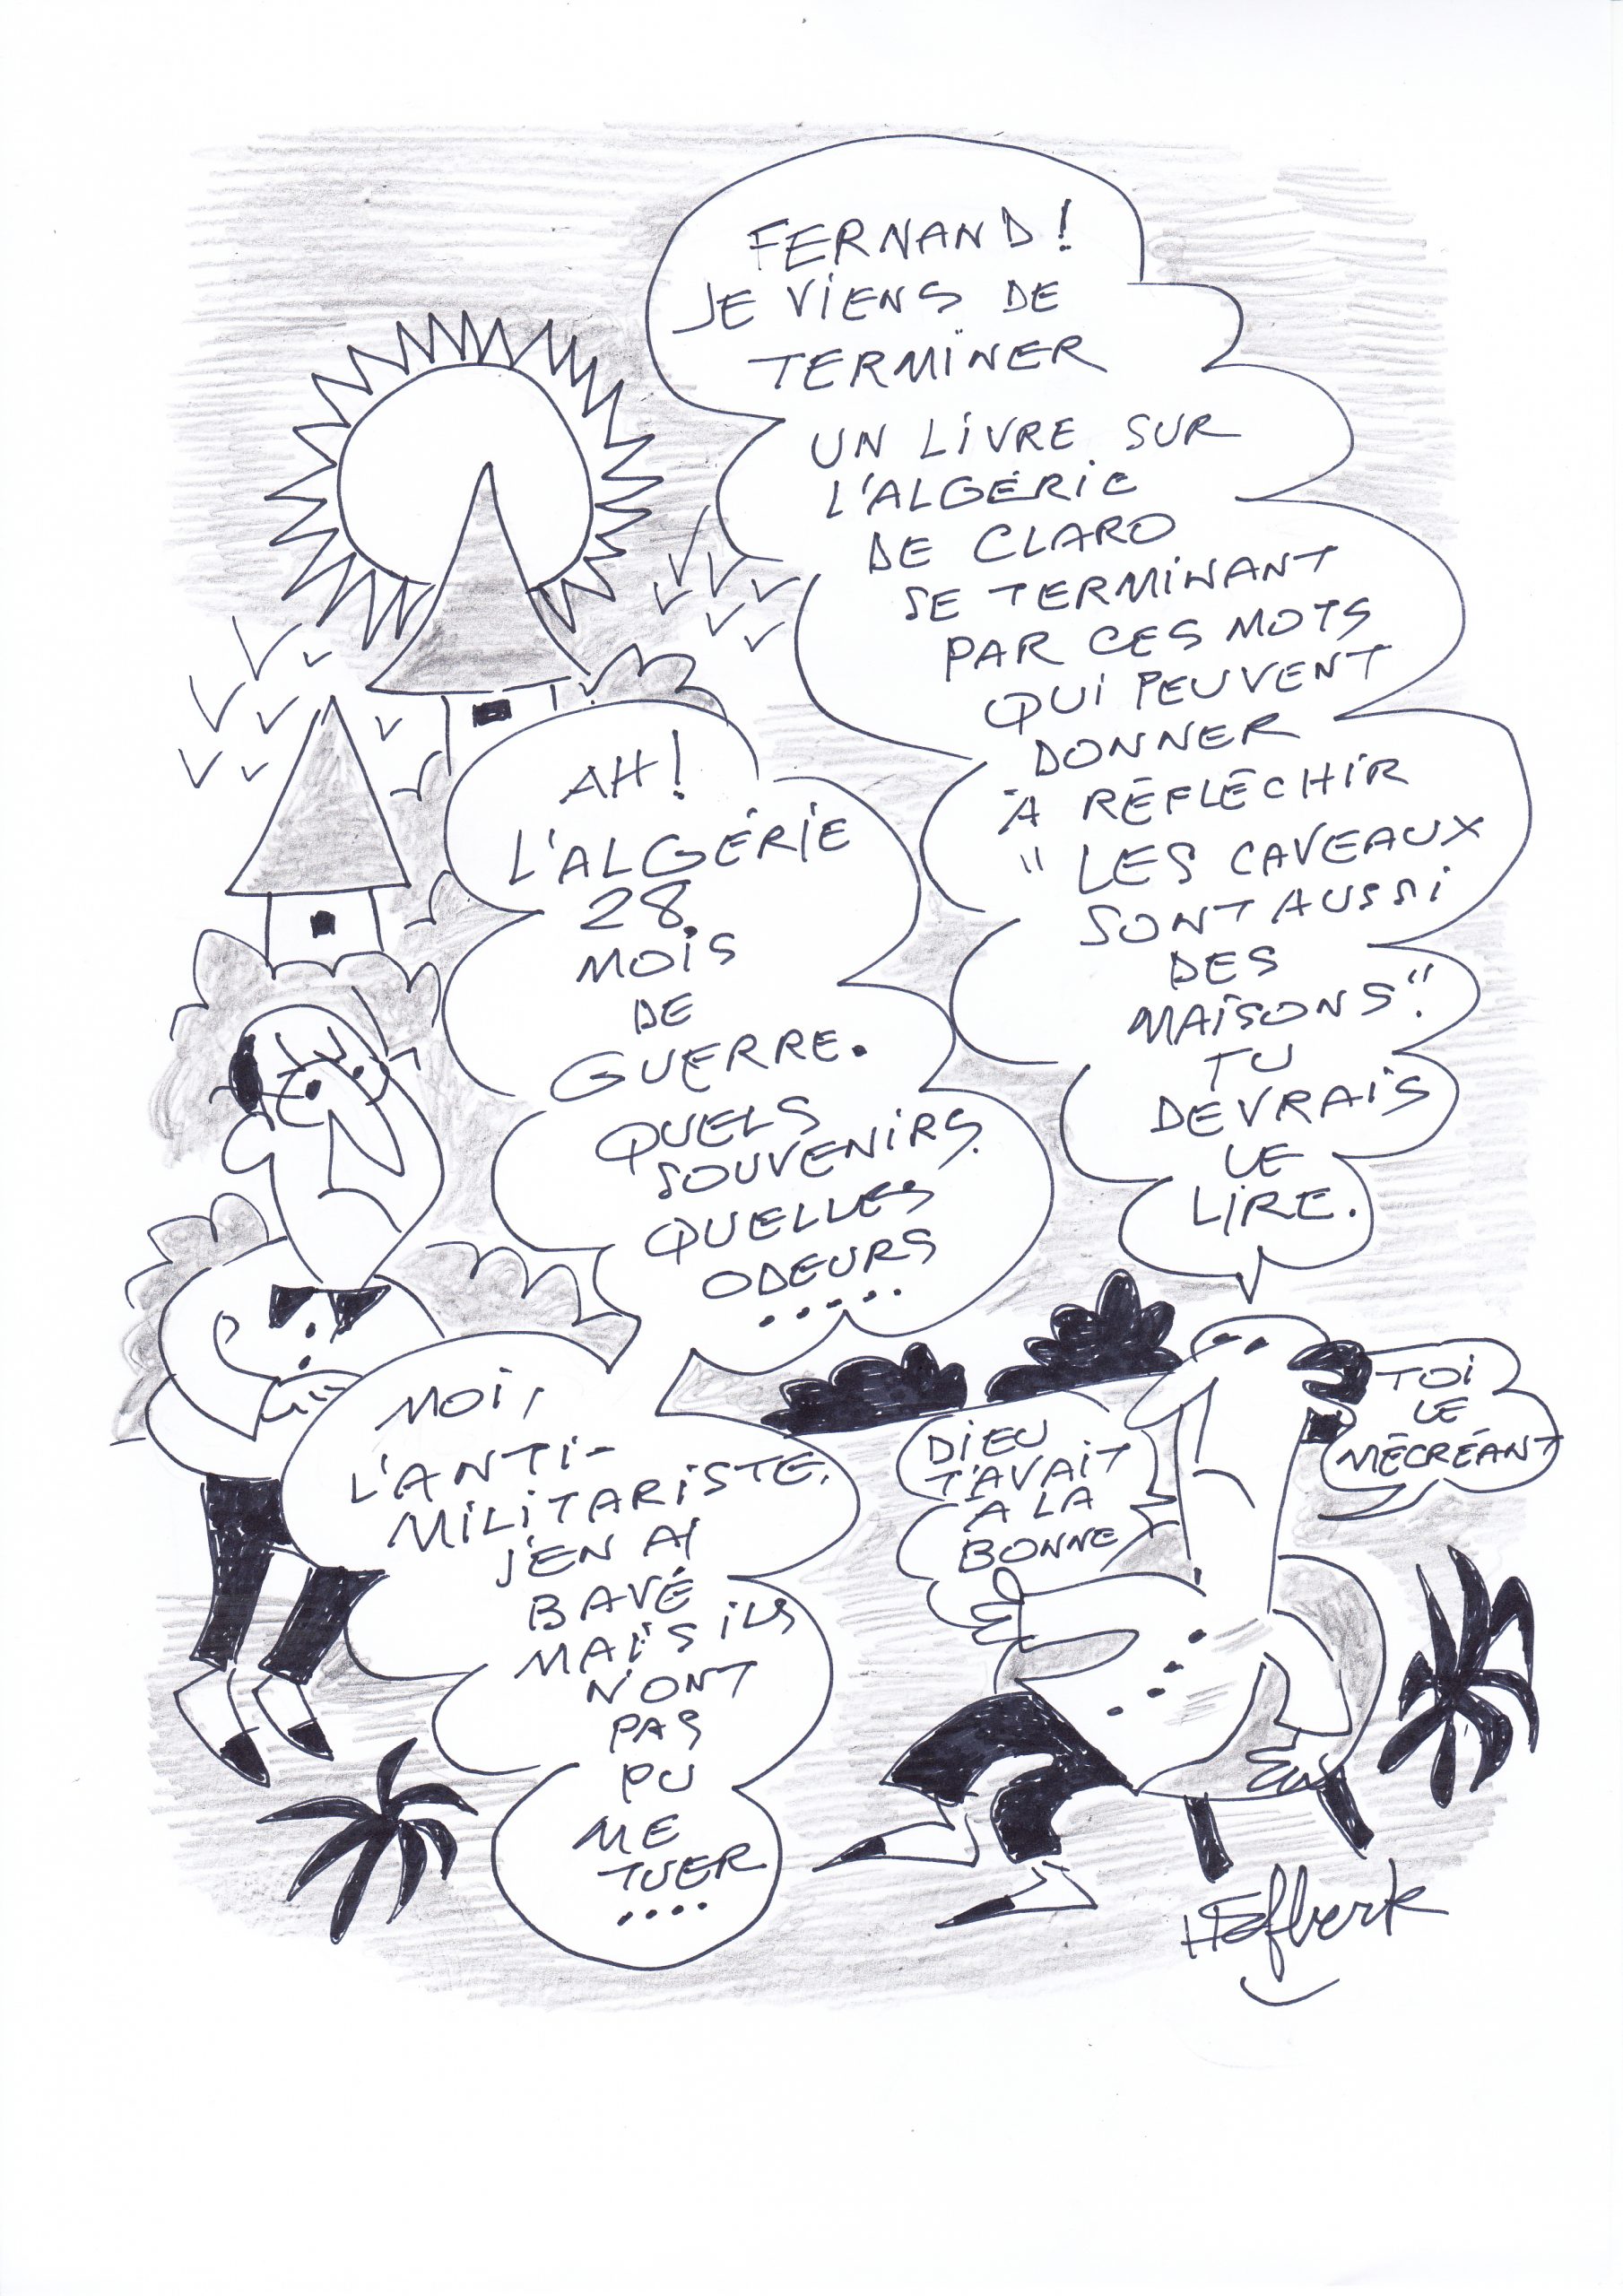 FERNAND!
JE VIENS DE
TERMINER
UN LIVRE SUR
L'ALGÉRIE
DE CLARO
SE TERMINANT
PAR CES MOTS
QUI PEUVENT
DONNER
À RÉFLÉCHIR
"LES CAVEAUX
SONT AUSSI
DES
MAISONS".
TU
DEVRAIS
LE
LIRE.
AH!
L'ALGÉRIE
28
MOIS
DE
GUERRE.
QUELS
SOUVENIRS.
QUELLES
ODEURS
.....
MOI,
L'ANTI-
MILITARISTE,
J'EN AI
BAVÉ
MAIS ILS
N'ONT
PAS
PU
ME
TUER
....
DIEU
T'AVAIT
À LA
BONNE
TOI
LE
MÉCRÉANT